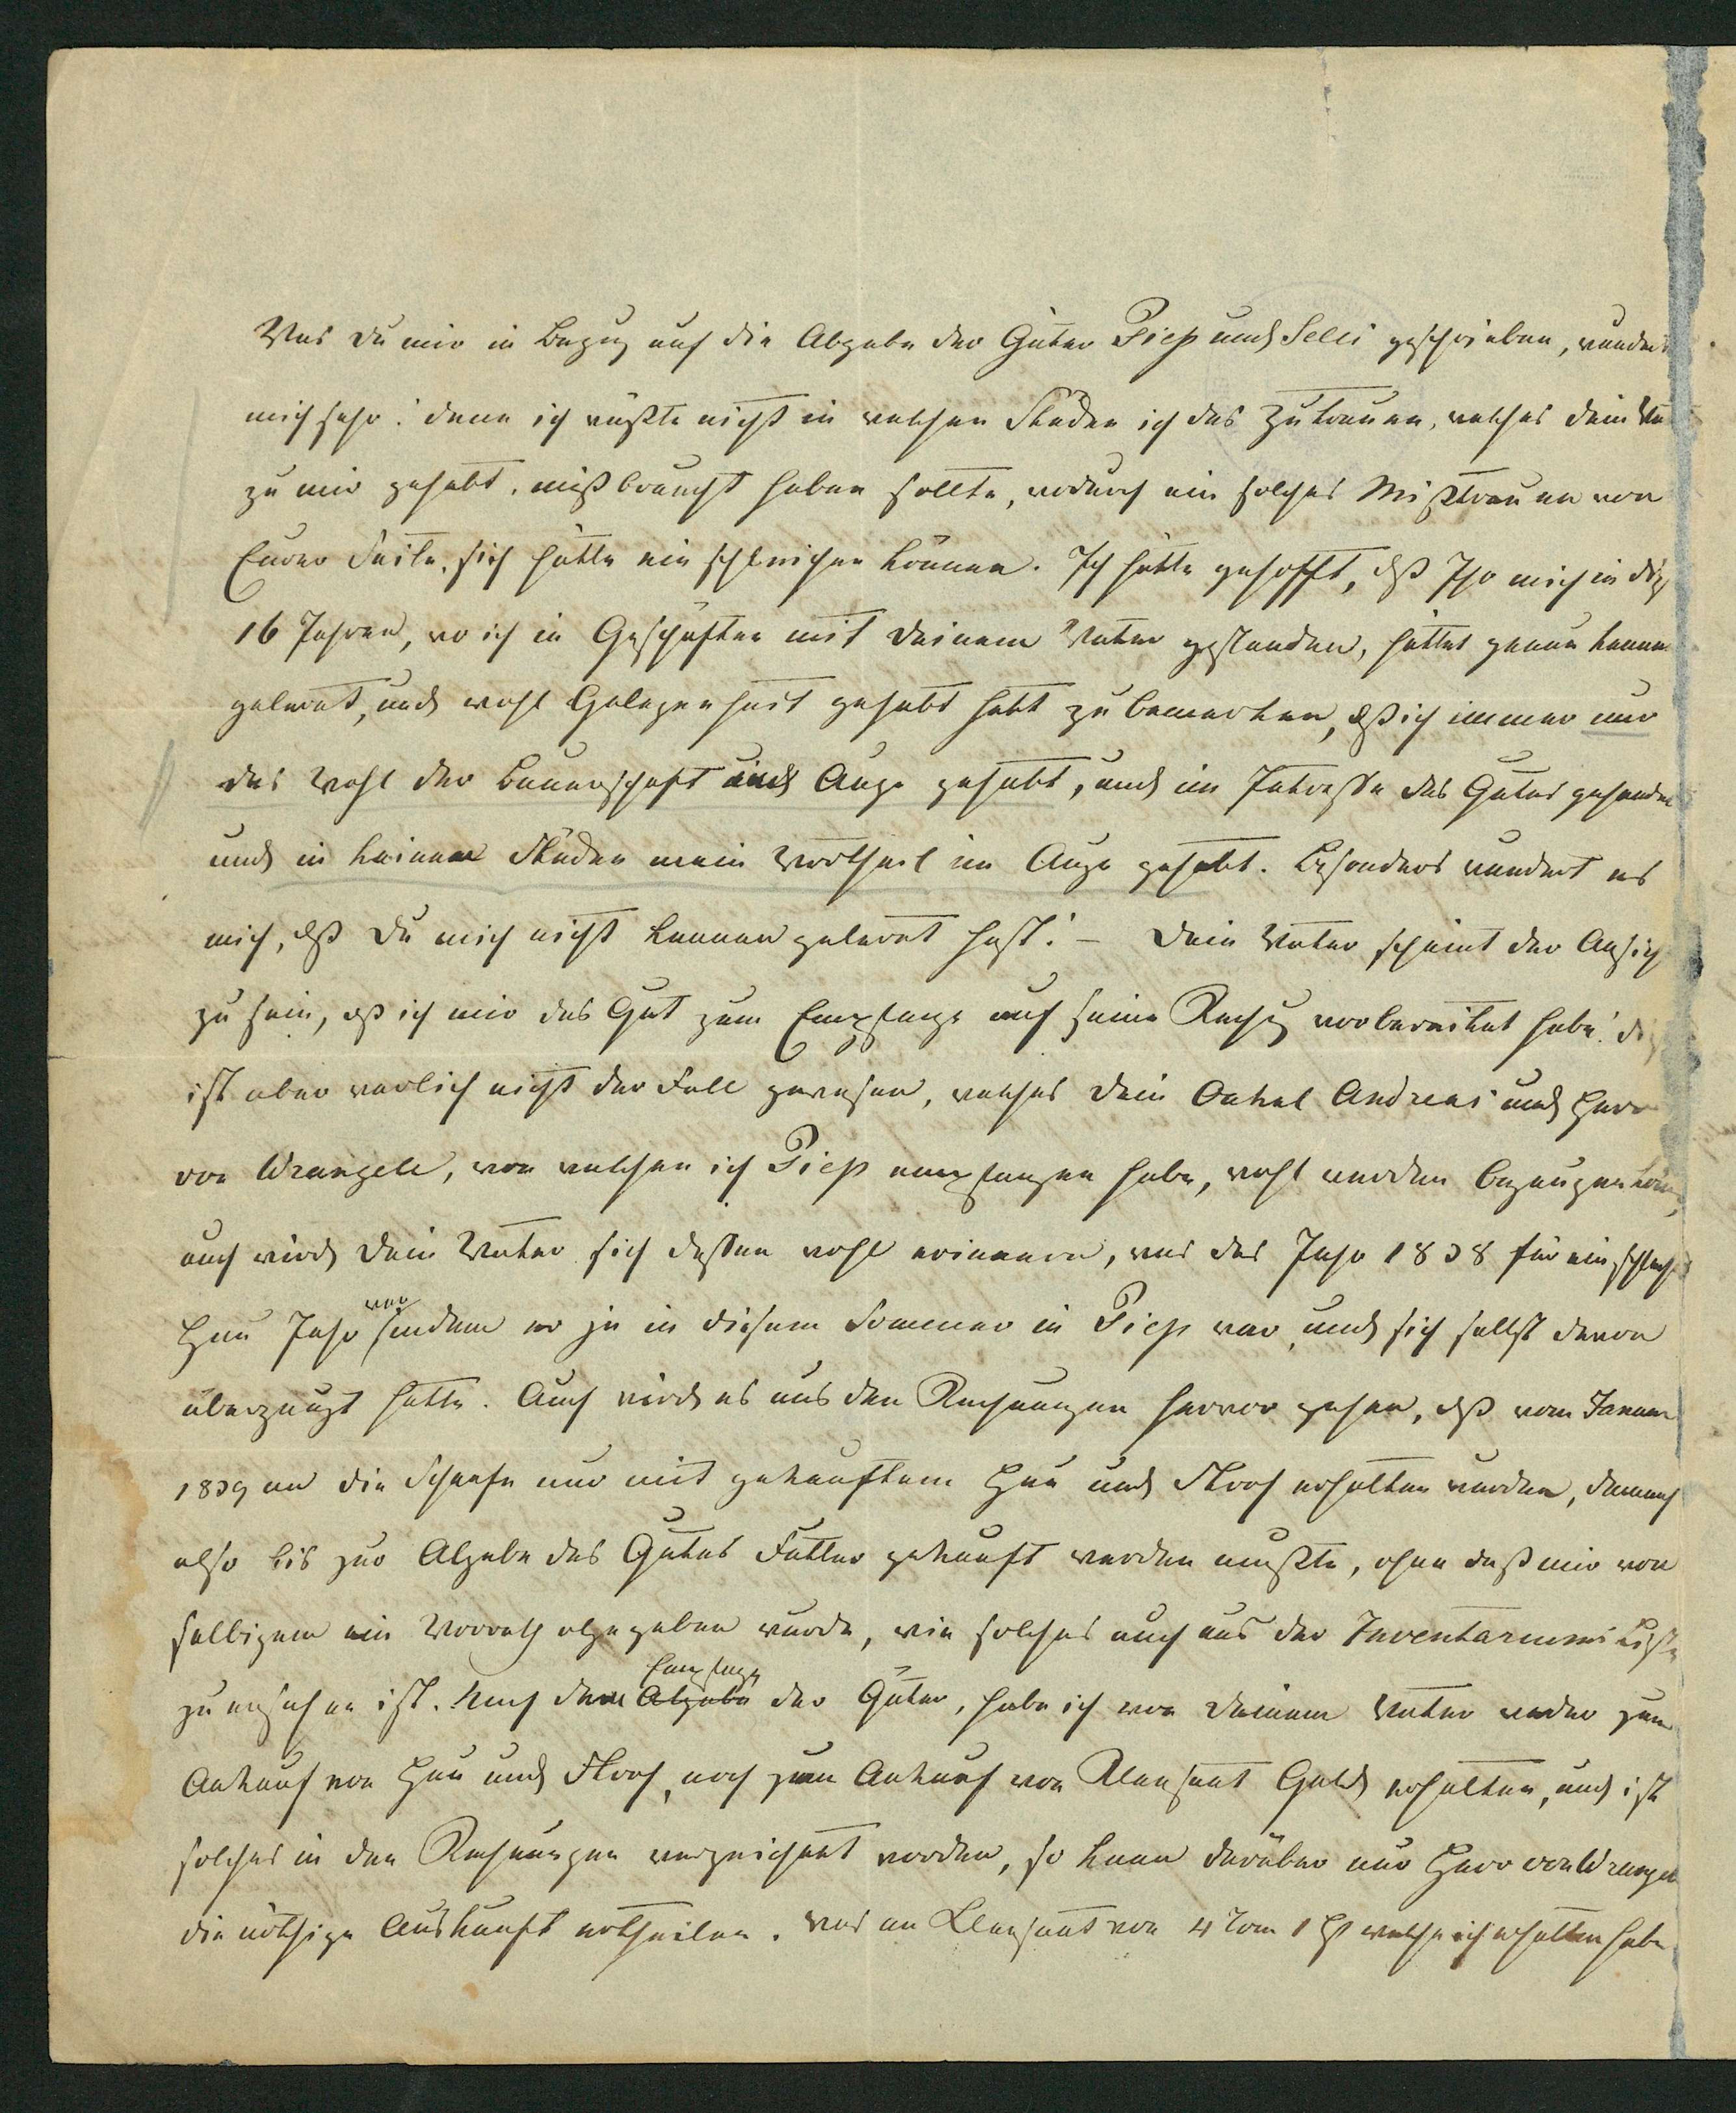 Was du mir in Bezug auf die Abgabe der Güter Piep und Selli geschrieben, wundert
mich sehr! denn ich wüßte nicht in welchen Stücken ich das Zutrauen, welches dein Va
zu mir gehabt, mißbraucht haben sollte, wodurch ein solches Mißtrauen von
Eurer Seite, sich hätte ein schleichen können. Ich hätte gehofft, daß Ihr mich in den
16 Jahren, wo ich in Geschäften mit deinem Vater gestanden, hättet genau kennen
gelernt, und wohl Gelegenheit gehabt habt zu bemerken, daß ich immer nur
das Wohl der Bauerschaft im Auge gehabt, und im Intresse des Gutes gehandelt
und in keinem Stücken mein Vortheil im Auge gehabt. Besonders wundert es
mich, daß du mich nicht kennen gelernt hast! – Dein Vater scheint der Ansicht
zu sein, daß ich mir das Gut zum Empfange auf seine Rechng vorbereitet habe! dies
ist aber warlich nicht der Fall gewesen, welches dein Onkel Andreas und Herr
von Wrangell, von welchen ich Piep empfangen habe, wohl werden bezeugen können,
auch wird dein Vater sich dessen wohl erinnern, was das Jahr 1838 für ein schlechtes
Heu Jahr war indem er ja in diesem Sommer in Piep war, und sich selbst davon
überzeugt hatte. Auch wird es aus den Rechnungen hervor gehen, daß vom Januar
1839 an die Schaafe nur mit gekauftem Heu und Stroh erhalten wurden, demnach
also bis zur Abgabe des Gutes Futter gekauft werden mußte, ohne daß mir von
selbigem ein Vorrath abgegeben wurde, wie solches auch aus der Inventariums Liste
zu ersehen ist. Nach dem Abgabe Empfange der Güter, habe ich von deinem Vater weder zum
Ankauf von Heu und Stroh, noch zum Ankauf von Kleesaat Geld erhalten, und ist
solches in den Rechnungen verzeichnet worden, so kann darüber nur Herr von Wrangell
die nöthige Auskunft ertheilen. Was an Kleesaat von 4 1 welche ich erhalten habe